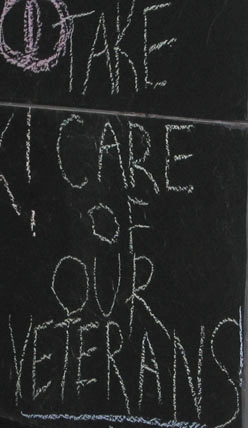 TAKE
CARE
OF
OUR
VETERANS